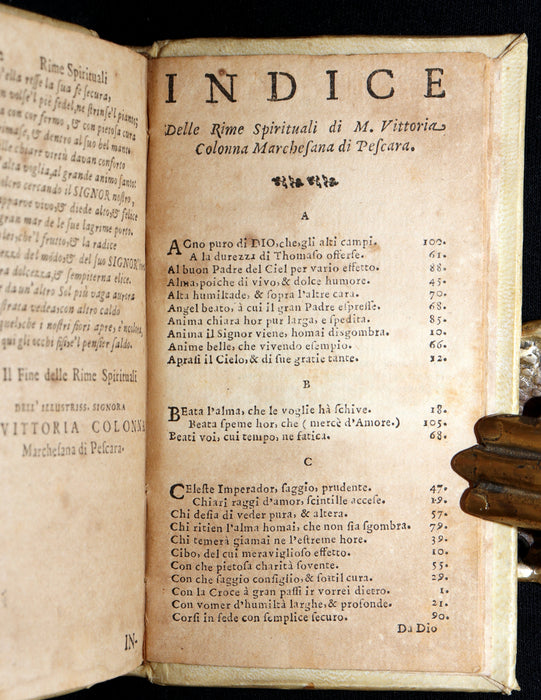 Rime Spirituali
'ella resse la sua fe secura,
n volse'l piè fedel, ne strinse'l pianto;
a con cor fermo, & con pietosa cura
rimase, & dentro al suo bel manto
lle chiare virtù davan conforto
'alta voglia, al grande animo santo:
cercando il SIGNOR nostro,
apparve vivo, & diede alto, & felice
gran mar de le sue lagrime porto.
che'l frutto, & la radice
ezzo del mōdo, & del suo SIGNOR
ra dolcezza, & sempiterna elice.
da un'altro Sol più vaga aurora
strata vedea; con altro caldo
quel, che i nostri fiori apre,
qui gli occhi pensier saldo.
Il Fine delle Rime Spirituali
DELL'ILLUSTRISS. SIGNORA
VITTORIA COLONNA
Marchesana di Pescara.
IN-
INDICE
Delle Rime Spirituali di M. Vittoria
Colonna Marchesana di Pescara.
A
AGno puro di DIO, che, gli alti campi. 100.
A la durezza di Thomaso offerse. 61.
Al buon Padre del Ciel per vario effetto. 88.
Alma, poiche di vivo, & dolce humore. 45.
Alta humiltade, & sopra l'altre cara. 70.
Angel beato, à cui il gran Padre espresse. 68.
Anima chiara hor pur larga, e spedita. 85.
Anima il Signor viene, homai disgombra. 10.
Anime belle, che vivendo esempio. 66.
Aprasi il Cielo, & di sue gratie tante. 12.
B
BEata l'alma, che le voglie hà schive. 18.
Beata speme hor, che ( mercè d'Amore.) 105.
Beati voi, cui tempo, ne fatica. 68.
C
CEleste Imperador, saggio, prudente. 47.
Chiari raggi d'amor, scintille accese. 19.
Chi desia di veder pura, & altera. 57.
Chi ritien l'alma homai, che non sia sgombra. 79.
Chi temerà giamai ne l'estreme hore. 39.
Cibo, del cui meraviglioso effetto. 10.
Con che pietosa charità sovente. 55.
Con che saggio consiglio, & sottil cura. 29.
Con la Croce à gran passi ir vorrei dietro. 1.
Con vomer d'humiltà larghe, & profonde. 21.
Corsi in fede con semplice securo. 90.
Da Dio